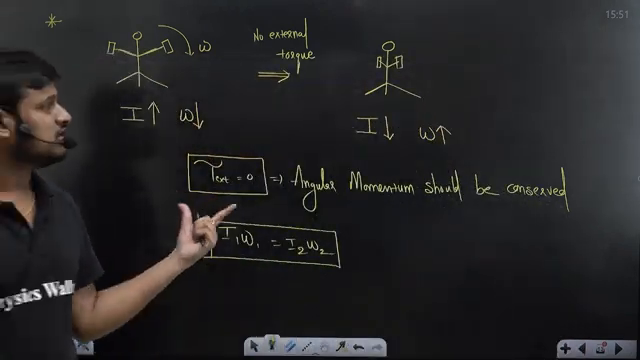 15:51
*
ω
No external
torque
⟹
I↑ ω↓
I↓ ω↑
τext = 0 ⇒ Angular Momentum should be conserved
I₁ω₁ = I₂ω₂
Physics Wall